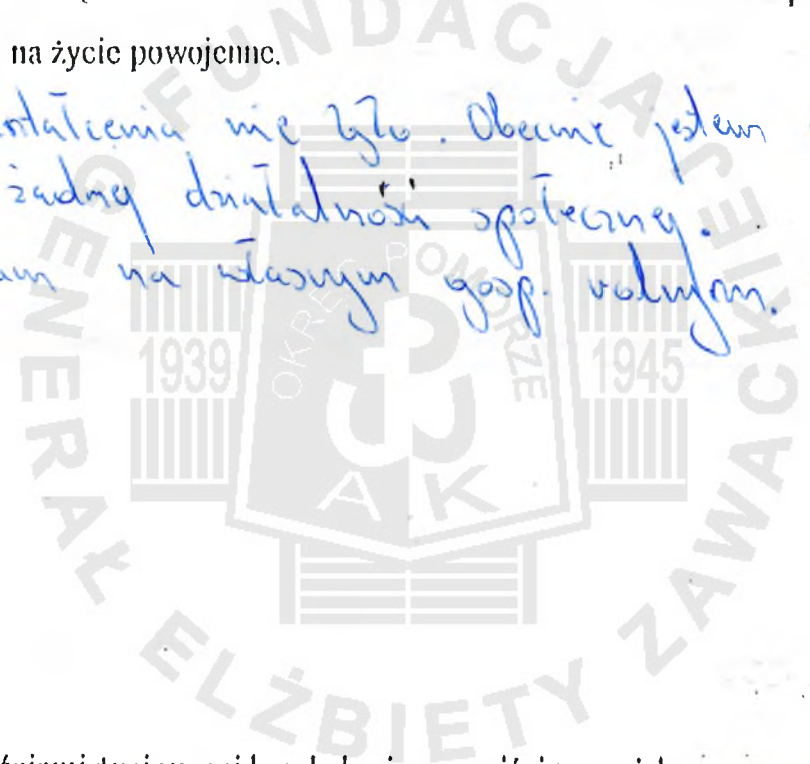 na życie powojenne.
ształcenia nie było. Obecnie jestem
żadnej działalności społecznej.
na własnym gosp. rolnym.
FUNDACJA
GENERAŁ ELŻBIETY ZAWACKIEJ
OKRĘG POMORZE
1939
1945
AK